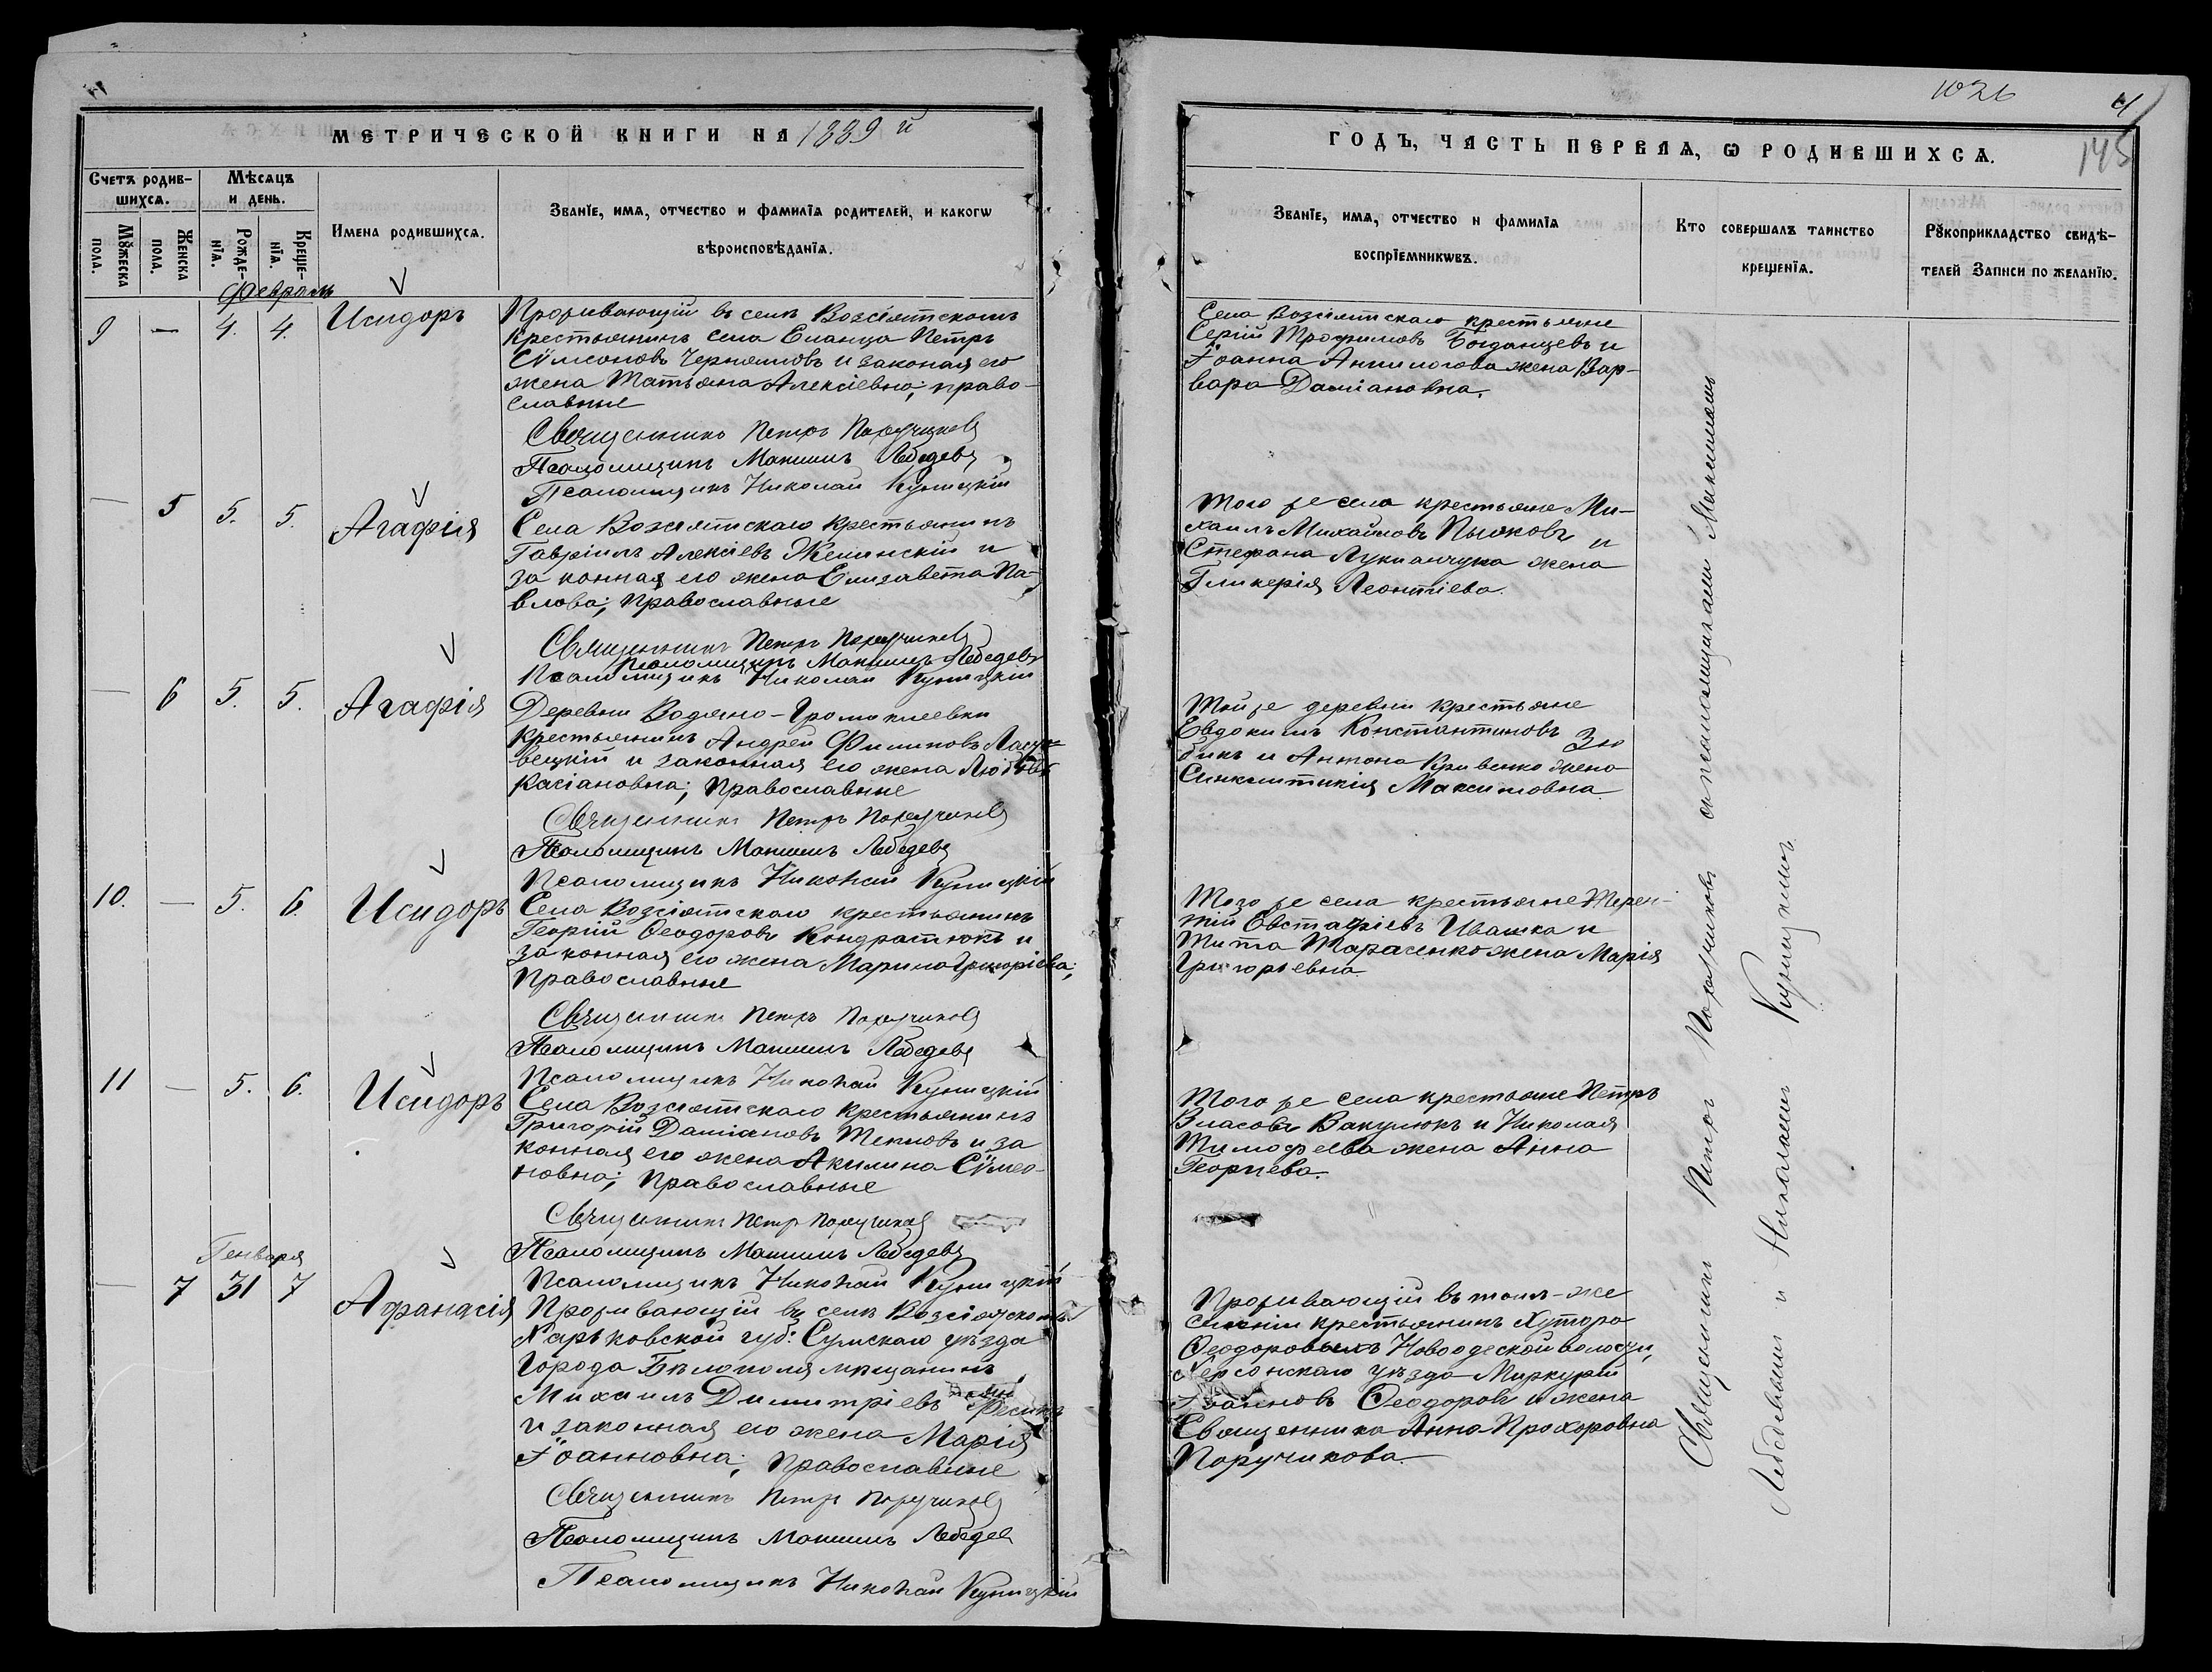 МЕТРИЧЕСКОЙ КНИГИ НА 1889 й
Счетъ родив-
шихсѧ.
Мѣсѧцъ
и день.
Мꙋжеска
пола.
Женска
пола.
Рожде-
нїѧ.
Креще-
нїѧ.
Имена родившихсѧ.
Званїе, имѧ, отчество и фамилїѧ родителей, и какогѡ
вѣроисповѣданїѧ.
Февраль
9 — 4. 4. Исидоръ
Проживающій въ селѣ Возсіятскомъ
крестьянинъ села Еланца Петръ
Сѵмеоновъ Чернятновъ и законая его
жена Татьяна Алексіевна; право-
славные
Священникъ Петръ Поручиковъ
Псаломщикъ Максимъ Лебедевъ
Псаломщикъ Николай Куницкій
— 5 5. 5. Агафія
Села Возсіятскаго крестьянинъ
Гавріилъ Алексіевъ Желинскій и
законная его жена Елизавета Па-
влова; православные
Священникъ Петръ Поручиковъ
Псаломщикъ Максимъ Лебедевъ
Псаломщикъ Николай Куницкій
— 6 5. 5. Агафія
Деревни Водяно-Громоклеевки
крестьянинъ Андрей Филиповъ
и законная его жена Любовь
Касіановна; православные
Священникъ Петръ Поручиковъ
Псаломщикъ Максимъ Лебедевъ
Псаломщикъ Николай Куницкій
10. — 5. 6. Исидоръ
Села Возсіятскаго крестьянинъ
Георгій Ѳеодоровъ Кондратюкъ и
законная его жена Марина Григоріева;
православные
Священникъ Петръ Поручиковъ
Псаломщикъ Максимъ Лебедевъ
Псаломщикъ Николай Куницкій
11 — 5. 6. Исидоръ
Села Возсіятскаго крестьянинъ
Григорій Даміановъ Текловъ и за
конная его жена Акилина Сѵмео-
новна; православные
Священникъ Петръ Поручиковъ
Псаломщикъ Максимъ Лебедевъ
Псаломщикъ Николай Куницкій
Генваря
— 7 31 7 Афанасія
Проживающій въ селѣ Возсіятскомъ
Харьковской губ: Сумскаго уѣзда
города Бѣлополя мѣщанинъ
Михаилъ Димитріевъ
и законная его жена Марія
Іоанновна; православные
Священникъ Петръ Поручиковъ
Псаломщикъ Максимъ Лебедевъ
Псаломщикъ Николай Куницкій
1026
4
145
ГОДЪ, ЧАСТЬ ПЕРВАѦ, Ѡ РОДИВШИХСѦ.
Званїе, имѧ, отчество и фамилїѧ
воспрїемникѡвъ.
Кто совершалъ таинство
крещенїѧ.
Рꙋкоприкладство свидѣ-
телей Записи по желанїю.
Села Возсіятскаго крестьяне
Сергій Трофимовъ Богданцевъ и
Іоанна Анпилогова жена Вар-
вара Даміановна.
Того же села крестьяне Ми-
хаилъ Михайловъ Пынковъ и
Стефана Лукианчука жена
Гликерія Леонтіева.
Той же деревни крестьяне
Евдокимъ Константиновъ Зю
бикъ и Антона Кривенко жена
Синклитикія Максимовна
Того же села крестьяне Терен-
тій Евстафіевъ Ивашка и
Тита Тарасенко жена Марія
Григорьевна
Того же села крестьяне Петръ
Власовъ Вакулюкъ и Николая
Тимофеева жена Анна
Георгіева.
Проживающій въ томъ-же
селеніи крестьянинъ Хутора
Ѳеодоровыхъ Новоодеской волости,
Херсонскаго уѣзда Меркурій
Іоанновъ Ѳеодоровъ и жена
Священника Анна Прохоровна
Поручикова.
Священникъ Петръ Поручиковъ съ псаломщиками Максимомъ
Лебедевымъ и Николаемъ Куницкимъ